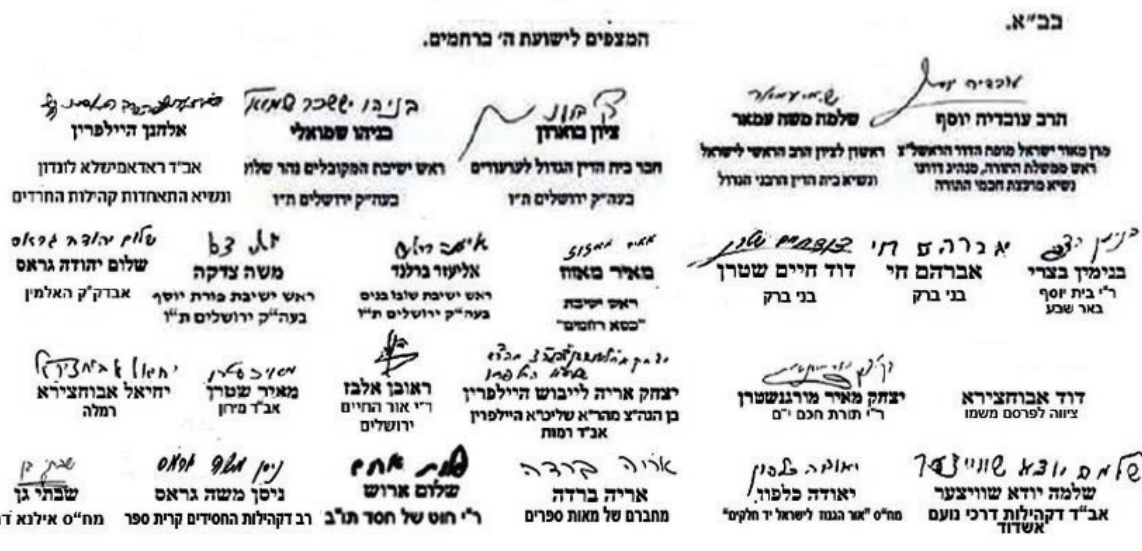 בב״א.
המצפים לישועת ה׳ ברחמים.
הרב עובדיה יוסף
מרן מאור ישראל מופת הדור הראשל״צ
ראש ממשלת התורה, מנהיג דורנו
נשיא מועצת חכמי התורה
שלמה משה עמאר
ראשון לציון הרב הראשי לישראל
ונשיא בית הדין הרבני הגדול
ציון בוארון
חבר בית הדין הגדול לערעורים
בעה״ק ירושלים ת״ו
בניהו יששכר שמואלי
בניהו שמואלי
ראש ישיבת המקובלים נהר שלום
בעה״ק ירושלים ת״ו
אלחנן היילפרין
אב״ד ראדאמישלא לונדון
ונשיא התאחדות קהילות החרדים
בנימין בצרי
ר״י בית יוסף
באר שבע
אברהם חי
אברהם חי
בני ברק
דוד חיים שטרן
דוד חיים שטרן
בני ברק
מאיר מאזוז
מאיר מאזוז
ראש ישיבת
״כסא רחמים״
אליעזר ברלנד
ראש ישיבת שובו בנים
בעה״ק ירושלים ת״ו
משה צדקה
ראש ישיבת פורת יוסף
בעה״ק ירושלים ת״ו
שלום יהודה גראס
שלום יהודה גראס
אבדק״ק האלמין
דוד אבוחצירא
ציווה לפרסם משמו
יצחק מאיר מורגנשטרן
ר״י תורת חכם י־ם
יצחק אריה לייבוש היילפרין
בן הגה״צ מהר״א שליט״א היילפרין
אב״ד רמות
ראובן אלבז
ר״י אור החיים
ירושלים
מאיר שטרן
מאיר שטרן
אב״ד מירון
יחיאל אבוחצירא
יחיאל אבוחצירא
רמלה
שלמה יודא שוויצער
שלמה יודא שוויצער
אב״ד דקהילות דרכי נועם
אשדוד
יאודה כלפון
יאודה כלפון
מח״ס ״אור הגנוז לישראל יד חלקים״
אריה ברדה
אריה ברדה
מחברם של מאות ספרים
שלום ארוש
שלום ארוש
ר״י חוט של חסד תו״ב
ניסן משה גראס
ניסן משה גראס
רב דקהילות החסידים קרית ספר
שבתי גן
מח״ס אילנא